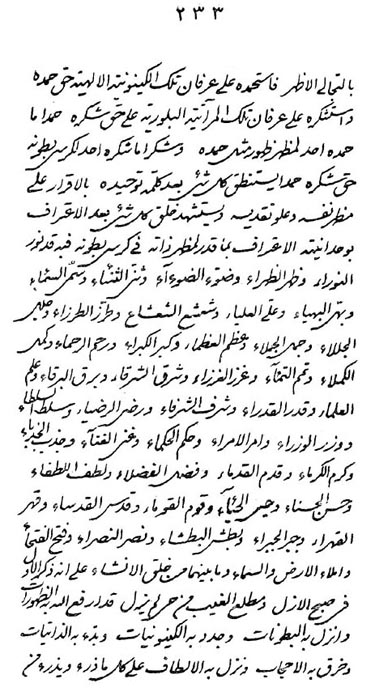 ٢٣٣
بالتجالی الاظهر فاستحمده علی عرفان تلک الکینونیة الالهیة حق حمده
واستشکره علی عرفان تلک المرآتیة البلوریة علی حق شکره حمدا ما
حمده احد لمظهر ظهوره مثل حمده وشکرا ما شکره احد لکرسی بطونه
حق شکره حمدا یستنطق کل شیء بعد کلمة توحیده بالاقرار علی
مظهر نفسه وعلو تقدیسه ویستشهد خلق کل شیء بعد الاعتراف
بوحدانیته الاعتراف بما قدر لمظهر ذاته فی کرسی بطونه فبه قد نور
النوراء وظهر الظهراء وضوء الضوءآء وثنی الثناء وسمی السماء
وبهی البهیاء وعلی العلیاء وشعشع الشعشاع وطرز الطرزاء وجلی
الجللاء وجمل الجملاء وعظم العظماء وکبر الکبراء ورحم الرحماء وکمل
الکملاء وتمم التماء وعزز العززاء وشرق الشرقاء وبرق البرقاء وعلم
العلماء وقدر القدراء وشرف الشرفاء ورضی الرضیاء وسلط السلطاء
ووزر الوزراء وامر الامراء وحکم الحکماء وغنی الغنآء وجذب الجذباء
وکرم الکرماء وقدم القدماء وفضل الفضلاء ولطف اللطفاء
وحسن الحسناء وحیی الحیاء وقوم القوماء وقدس القدساء وقهر
القهراء وجبر الجبراء وبطش البطشاء ونصر النصراء وفتح الفتحاء
واملاء الارض والسماء وما بینهما من خلق الانشاء علی انه ذکر الاول
فی صبح الازل ومطلع الغیب من حی لم یزل قد ارفع الله به الظهورات
وانزل به البطونات وجدد به الکینونیات وبدء به الذاتیات
وخرق به الاحجاب ونزل به الالطاف علی کل ما ذرء ویذرء من